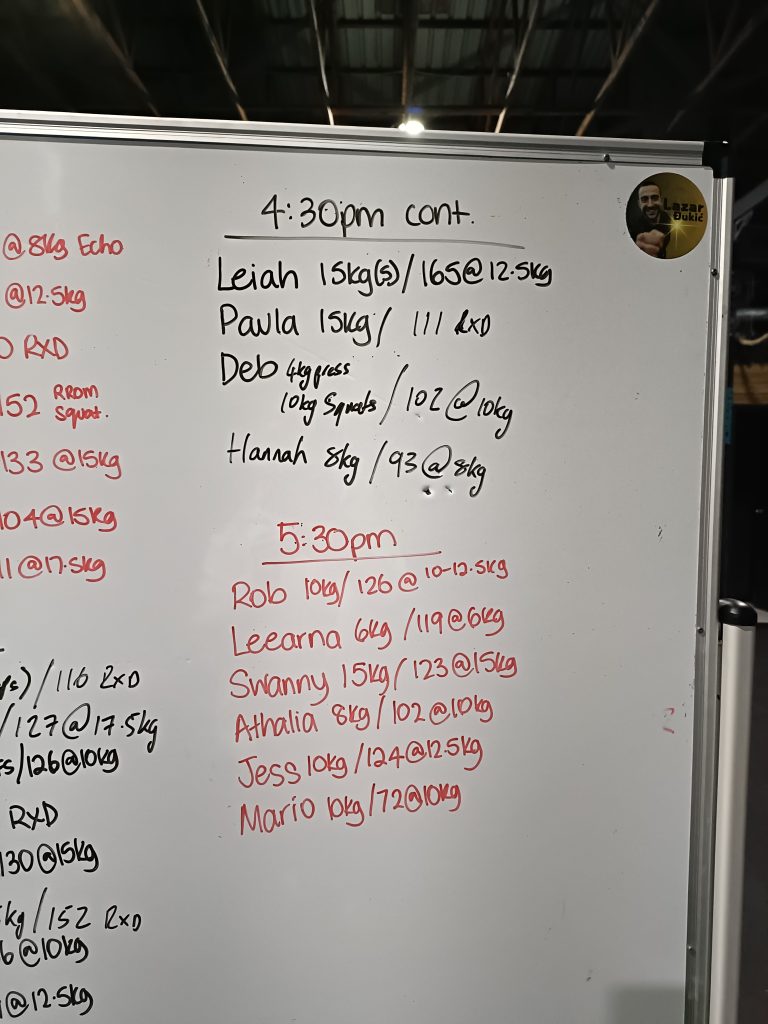 @8kg Echo
@12.5kg
0 RXD
152 RROM
Squat.
133 @15kg
104@15kg
11@17.5kg
/116 RXD
/127@17.5kg
/126@10kg
RXD
130@15kg
kg/152 RXD
6@10kg
@12.5kg
4:30pm cont.
Leiah 15kg(s)/165@12.5kg
Paula 15kg/ 111 RXD
Deb 4kg press
10kg Squats /102@10kg
Hannah 8kg/93@8kg
5:30pm
Rob 10kg/126@10-12.5kg
Leearna 6kg/119@6kg
Swanny 15kg/123@15kg
Athalia 8kg/102@10kg
Jess 10kg/124@12.5kg
Mario 10kg/72@10kg
Lazar
Đukić